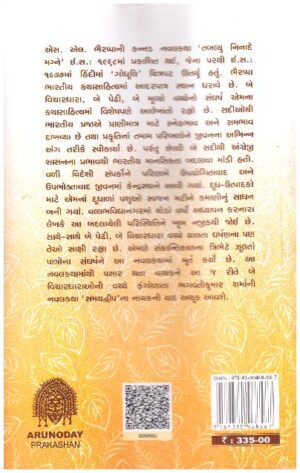 એસ. એલ. ભૈરપ્પાની કન્નડ નવલકથા 'તબલ્યુ નિનાદે
મગને' ઈ.સ.: ૧૯૬૮માં પ્રકાશિત થઈ, જેના પરથી ઈ.સ.:
૧૯૭૭માં હિંદીમાં 'ગોધૂલિ' ચિત્રપટ ઊતર્યું હતું. ભૈરપ્પા
ભારતીય કથાસાહિત્યમાં આદરપાત્ર સ્થાન ધરાવે છે. બે
વિચારધારા, બે પેઢી, બે મૂલ્યો વચ્ચેનો સંઘર્ષ એમના
કથાસાહિત્યમાં વિશેષપણે આલેખાતો રહ્યો છે. સદીઓથી
ભારતીય પ્રજાએ પ્રાણીમાત્ર માટે સ્નેહભાવ અને સમભાવ
દાખવ્યા છે તથા પ્રકૃતિનાં તમામ પરિબળોને જીવનના અભિન્ન
અંગ તરીકે સ્વીકાર્યાં છે. પરંતુ છેલ્લી બે સદીથી અંગ્રેજી
શાસનના પ્રભાવથી ભારતીય માનસિકતા બદલાવા માંડી હતી.
વળી વિદેશી સંપર્કોને પરિણામે ઉપયોગિતાવાદ અને
ઉપભોક્તાવાદ જીવનમાં કેન્દ્રસ્થાને આવી ગયાં. દૂધ-ઉત્પાદકો
માટે એમનાં દૂધાળાં પશુઓ સ્વજન મટીને કમાણીનું સાધન
બની ગયાં. વલ્લભવિદ્યાનગરમાં થોડો વર્ષો અધ્યાપન કરનારા
લેખકે આ બદલાયેલી પરિસ્થિતિને ખૂબ નજીકથી જોઈ છે.
સાથે-સાથે બે પેઢી, બે વિચારધારા વચ્ચે ચાલતા ઘર્ષણના પણ
તેઓ સાક્ષી રહ્યા છે. એમણે સંક્રાન્તિકાળના ત્રિભેટે ઝૂલતાં
પાત્રોના સંઘર્ષને આ નવલકથામાં મૂર્ત કર્યો છે. આ
નવલકથામાંથી પસાર થતા વાચકને આ જ રીતે બે
વિચારધારાઓની વચ્ચે ફંગોળાતા ભગવતીકુમાર શર્માની
નવલકથા 'સમયદ્વીપ'ના નાયકની યાદ અચૂક આવશે.
ARUNODAY
PRAKASHAN
GODHULI
₹ : 335-00